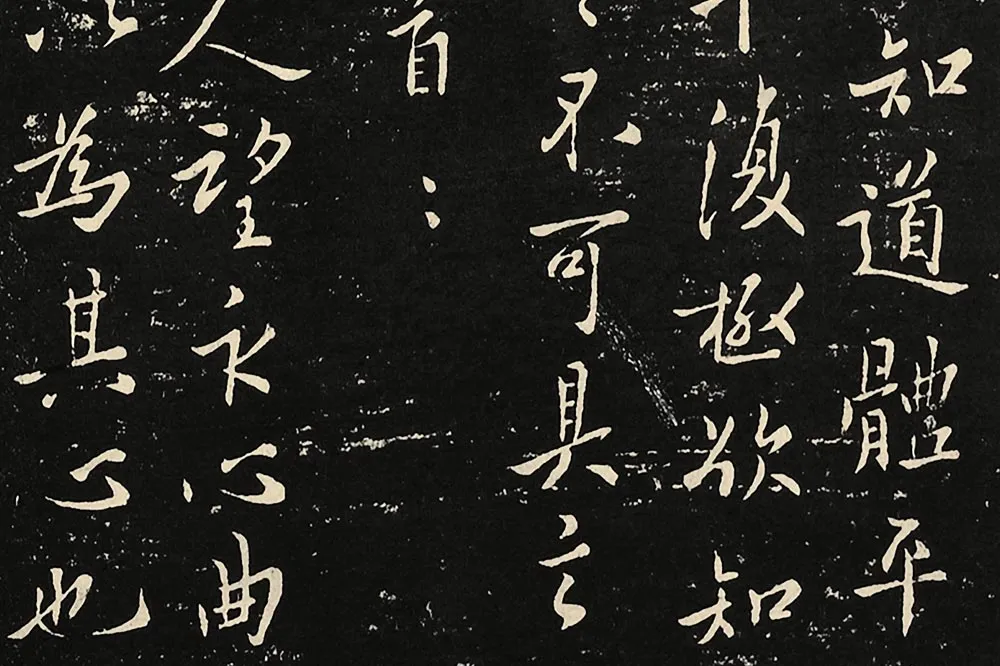 知道體平
復極欲知
不可具言
首：
人望永心曲
為其心也